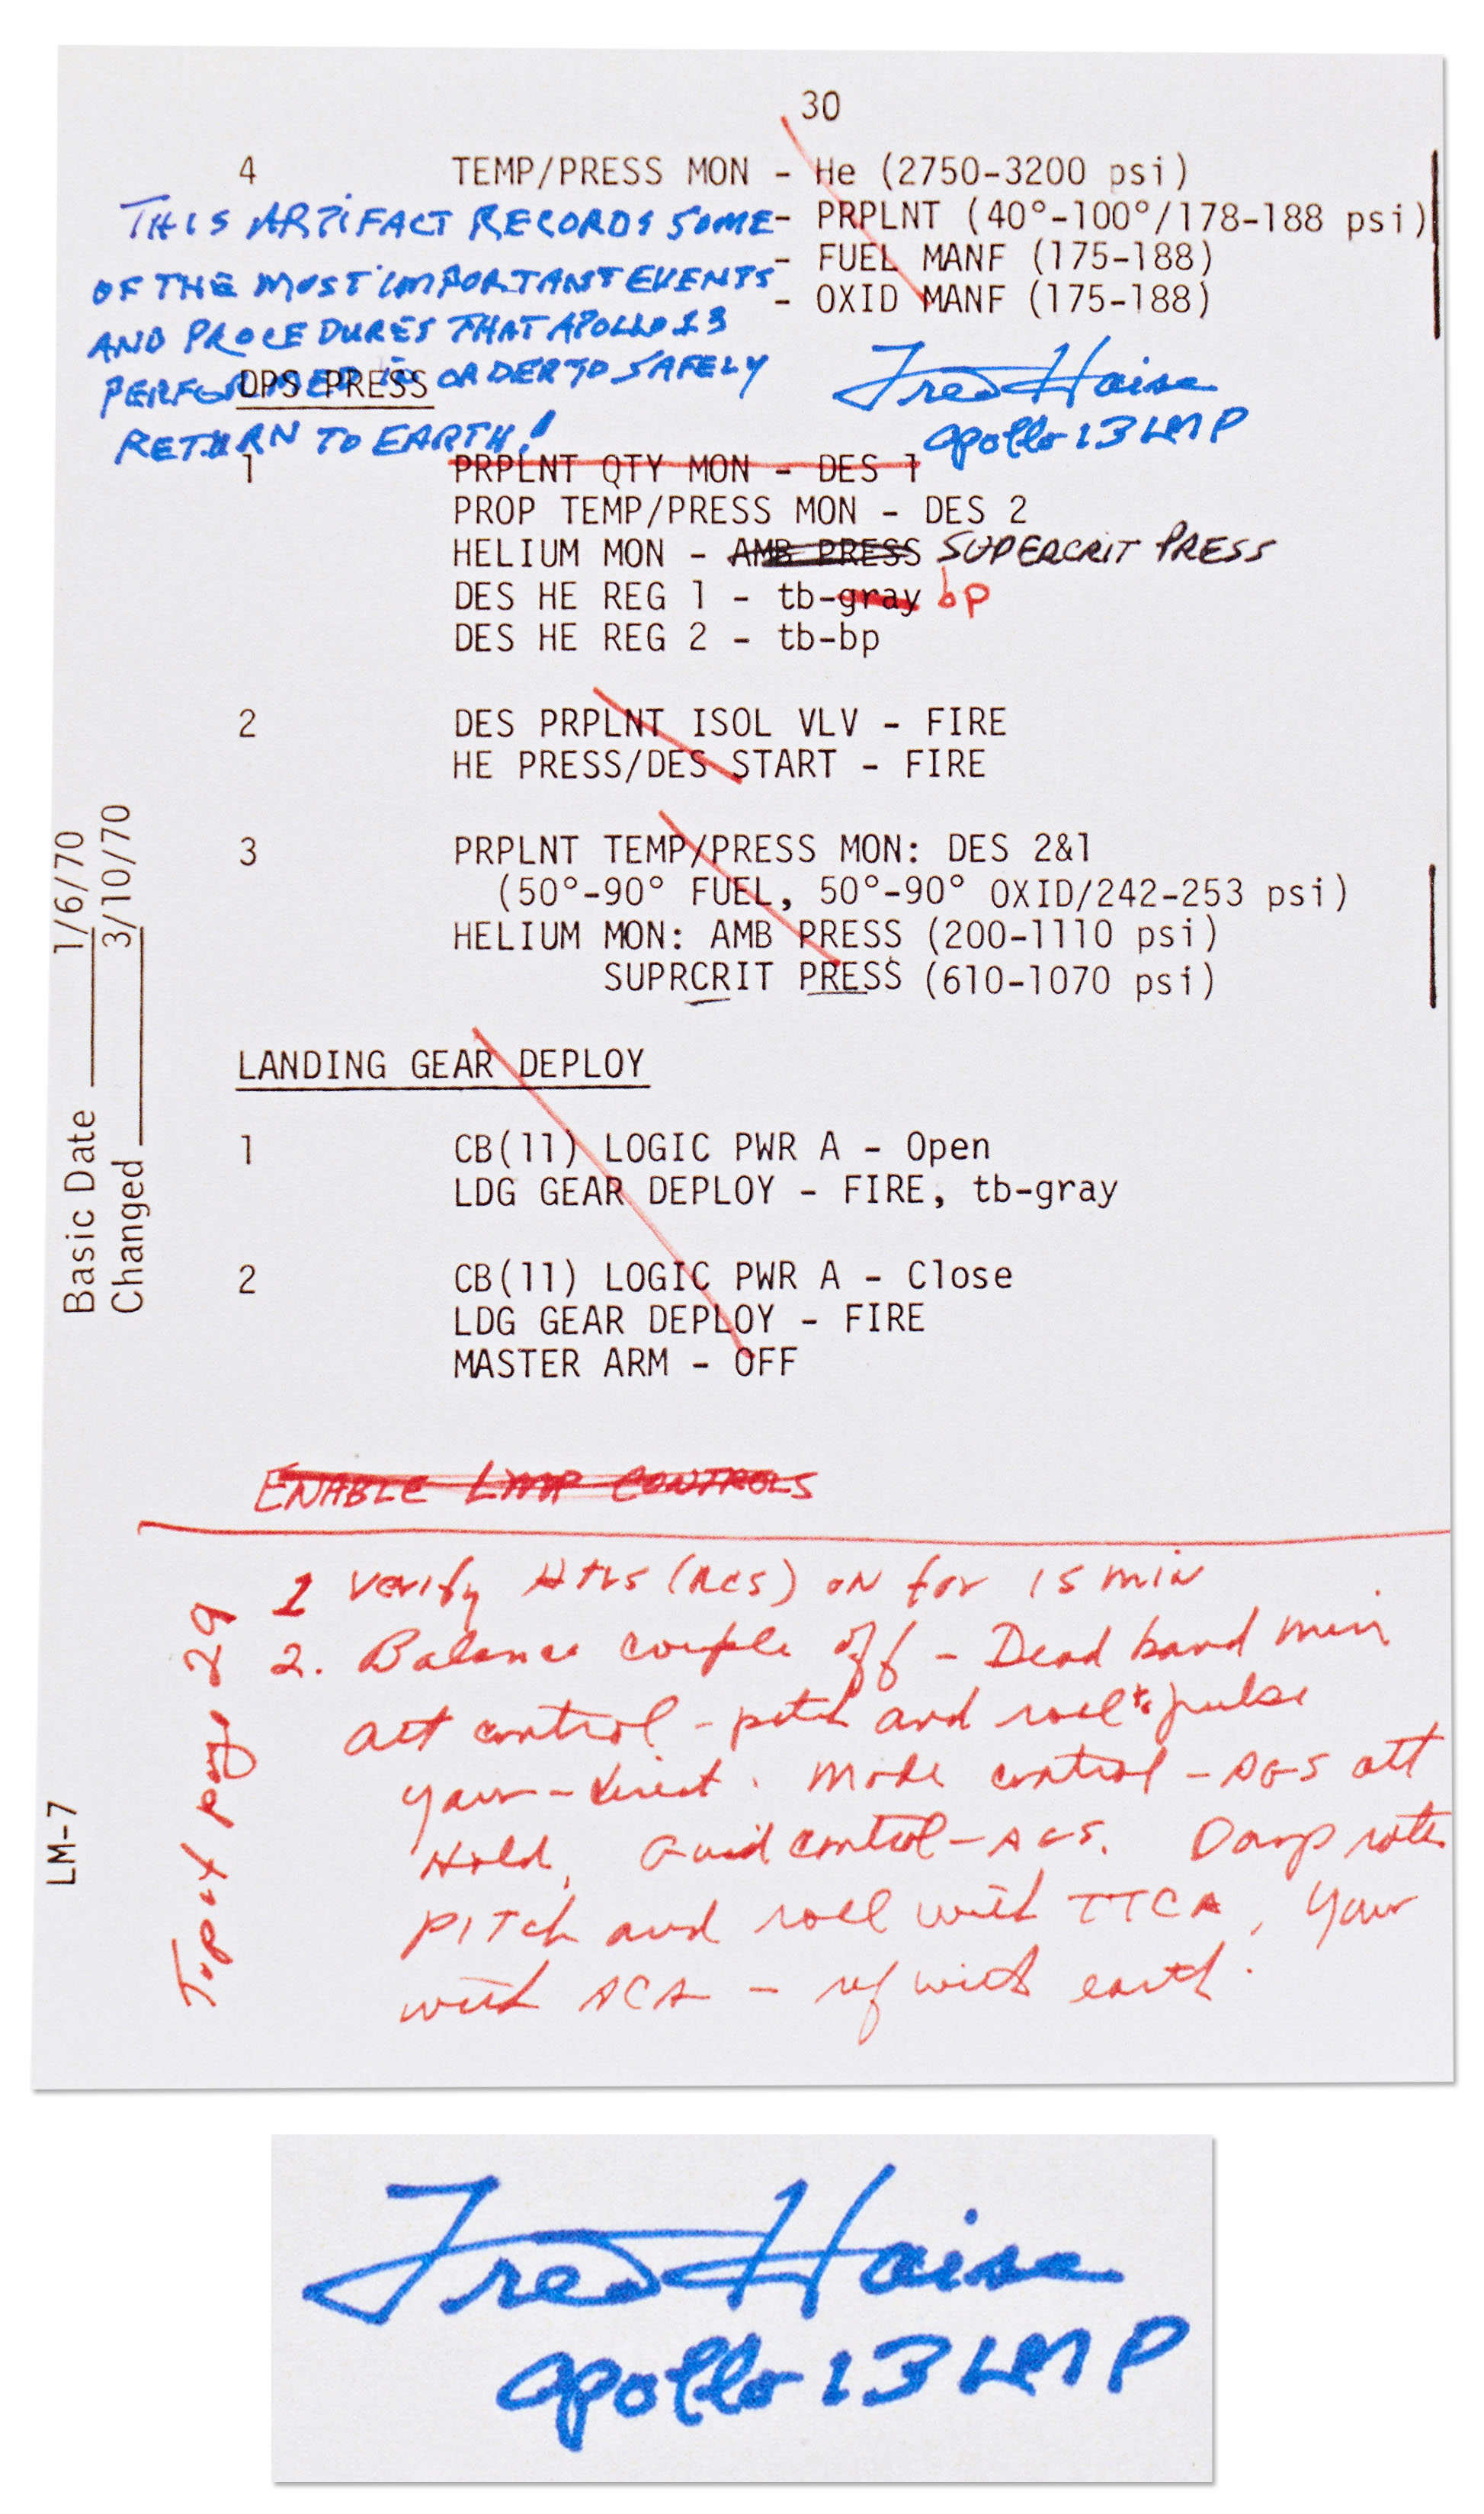 30
4 TEMP/PRESS MON - He (2750-3200 psi)
- PRPLNT (40°-100°/178-188 psi)
- FUEL MANF (175-188)
- OXID MANF (175-188)
THIS ARTIFACT RECORDS SOME
OF THE MOST IMPORTANT EVENTS
AND PROCEDURES THAT APOLLO 13
PERFORMED IN ORDER TO SAFELY
RETURN TO EARTH!
Fred Haise
Apollo 13 LMP
DPS PRESS
1 PRPLNT QTY MON - DES 1
PROP TEMP/PRESS MON - DES 2
HELIUM MON - AMB PRESS SUPERCRIT PRESS
DES HE REG 1 - tb-gray bp
DES HE REG 2 - tb-bp
2 DES PRPLNT ISOL VLV - FIRE
HE PRESS/DES START - FIRE
3 PRPLNT TEMP/PRESS MON: DES 2&1
(50°-90° FUEL, 50°-90° OXID/242-253 psi)
HELIUM MON: AMB PRESS (200-1110 psi)
SUPRCRIT PRESS (610-1070 psi)
LANDING GEAR DEPLOY
1 CB(11) LOGIC PWR A - Open
LDG GEAR DEPLOY - FIRE, tb-gray
2 CB(11) LOGIC PWR A - Close
LDG GEAR DEPLOY - FIRE
MASTER ARM - OFF
Basic Date 1/6/70
Changed 3/10/70
LM-7
ENABLE LMP CONTROLS
Top of page 29
1 Verify Htrs (RCS) on for 15 min
2. Balance couple off - Dead band min
att control - pitch and roll pulse
yaw - direct. Mode control - AGS att
Hold, Guid control - AGS. Damp rates
Pitch and roll with TTCA, Yaw
with ACA - ref with earth.
Fred Haise
Apollo 13 LMP